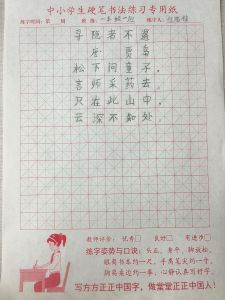 中小学生硬笔书法练习专用纸
练字时间：第 周 班级：一年级一班 练字人：
寻隐者不遇
唐 贾岛
松下问童子，
言师采药去。
只在此山中，
云深不知处。
教师评价：优秀□ 良好□ 有进步□
练字姿势与口诀：头正、身平、脚放松，
眼离书本约一尺，手离笔尖约一寸，
胸离桌边约一拳，心静认真写好字。
写方方正正中国字，做堂堂正正中国人！